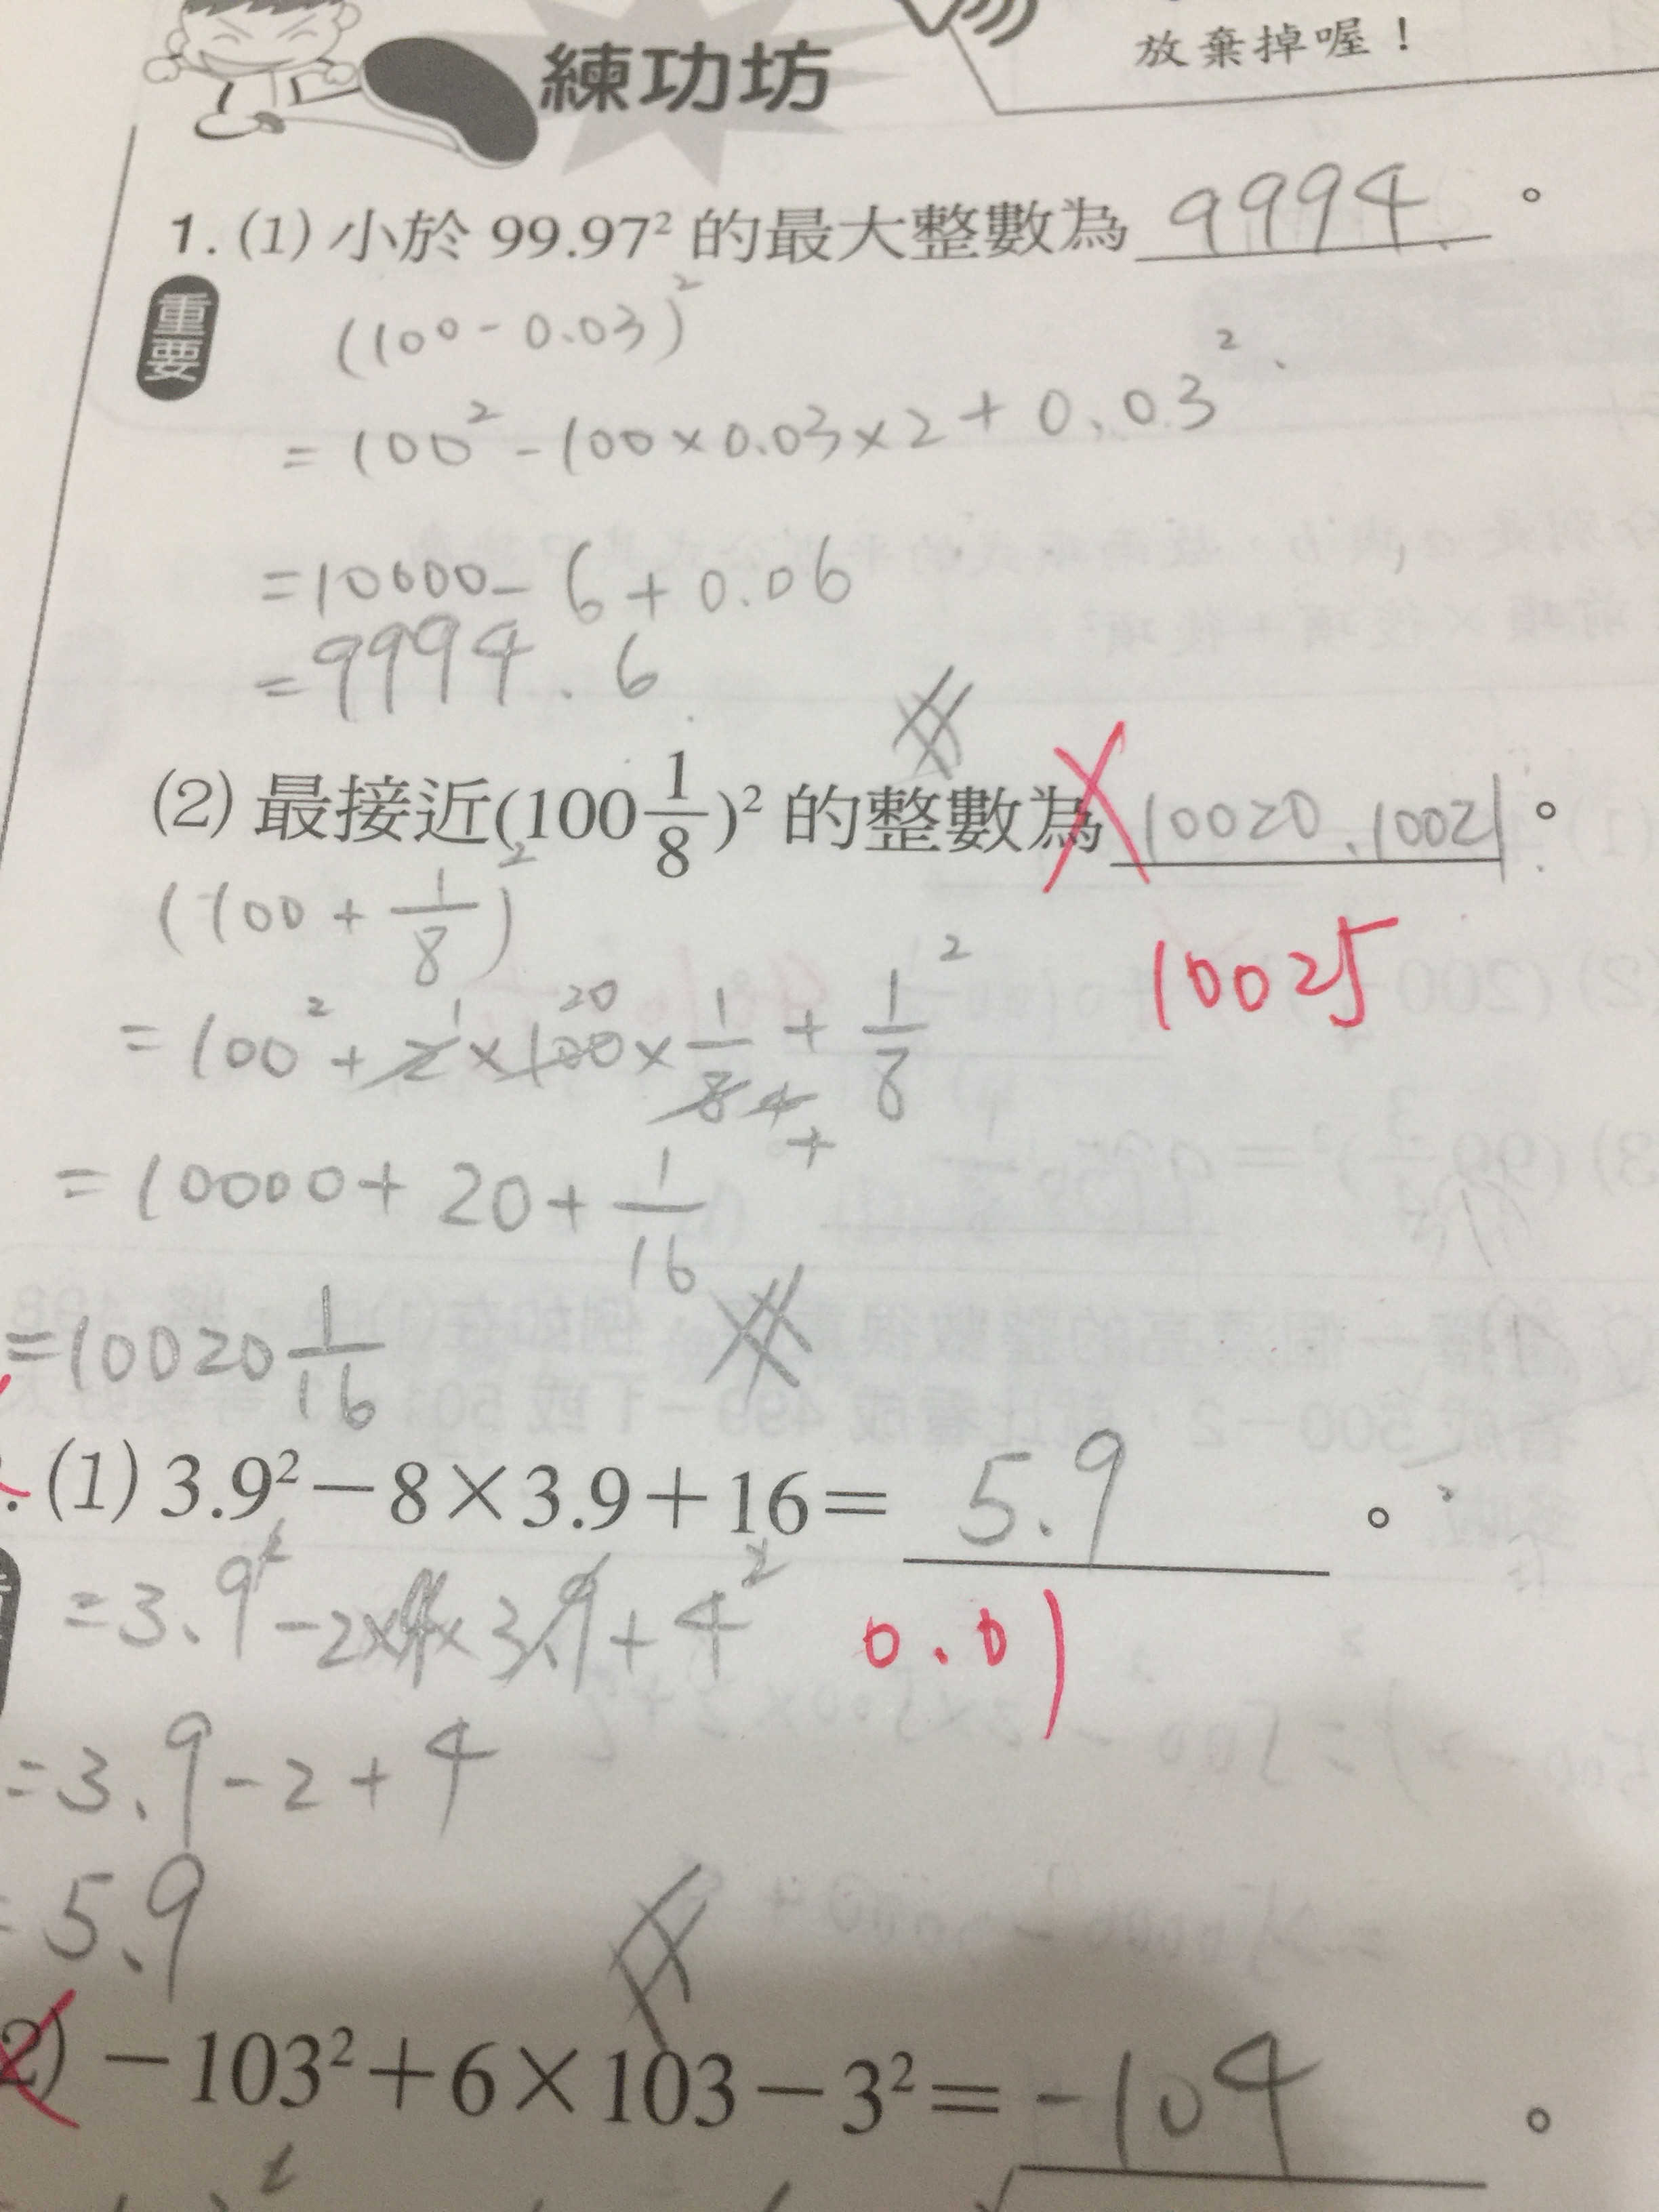 放棄掉喔！
練功坊
1.(1) 小於 99.97² 的最大整數為 9994 。
重要
(100-0.03)²
=100²-100×0.03×2+0.03²
=10000-6+0.06
=9994.6
(2) 最接近(100 1/8)² 的整數為 10020、10021 。
(100+1/8)²
10025
=100²+2×100×1/8+1/8²
=10000+20+1/16
=10020 1/16
(1) 3.9²－8×3.9＋16＝ 5.9 。
=3.9²-2×4×3.9+4²
0.01
=3.9-2+4
=5.9
2) －103²＋6×103－3²＝ -104 。